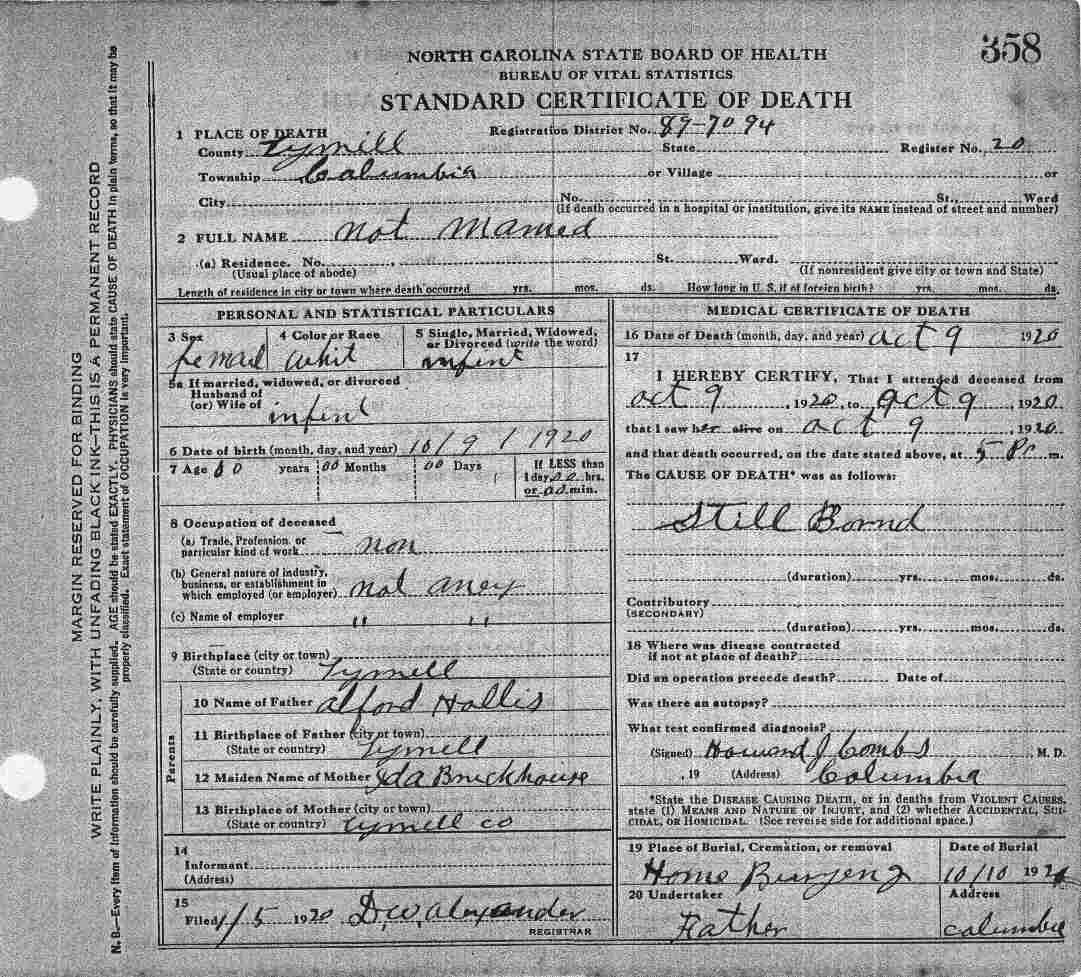 358
NORTH CAROLINA STATE BOARD OF HEALTH
BUREAU OF VITAL STATISTICS
STANDARD CERTIFICATE OF DEATH
1 PLACE OF DEATH Registration District No. 89-7094
County Tyrrell State Register No. 20
Township Columbia or Village or
City No. , St., Ward
(If death occurred in a hospital or institution, give its NAME instead of street and number)
2 FULL NAME not Named
(a) Residence. No. , St. Ward.
(Usual place of abode) (If nonresident give city or town and State)
Length of residence in city or town where death occurred yrs. mos. ds. How long in U. S. if of foreign birth? yrs. mos. ds.
PERSONAL AND STATISTICAL PARTICULARS
3 Sex 4 Color or Race 5 Single, Married, Widowed,
or Divorced (write the word)
femail whit infent
5a If married, widowed, or divorced
Husband of
(or) Wife of infent
6 Date of birth (month, day, and year) 10/9/1920
7 Age 00 years 00 Months 00 Days If LESS than
1 day, 00 hrs.
or 00 min.
8 Occupation of deceased
(a) Trade, Profession, or
particular kind of work non
(b) General nature of industry,
business, or establishment in
which employed (or employer) not aney
(c) Name of employer " "
9 Birthplace (city or town)
(State or country) Tyrrell
Parents
10 Name of Father Alford Hollis
11 Birthplace of Father (city or town)
(State or country) Tyrrell
12 Maiden Name of Mother Ida Brickhouse
13 Birthplace of Mother (city or town)
(State or country) Tyrrell co
14
Informant
(Address)
15
Filed 1920 D.W. Alexander
REGISTRAR
MEDICAL CERTIFICATE OF DEATH
16 Date of Death (month, day, and year) oct 9 1920
17
I HEREBY CERTIFY, That I attended deceased from
oct 9, 1920, to oct 9, 1920
that I saw her alive on oct 9, 1920
and that death occurred, on the date stated above, at 5 P m.
The CAUSE OF DEATH* was as follows:
Still Bornd
(duration) yrs. mos. ds.
Contributory
(SECONDARY)
(duration) yrs. mos. ds.
18 Where was disease contracted
if not at place of death?
Did an operation precede death? Date of
Was there an autopsy?
What test confirmed diagnosis?
(Signed) Howard J Combs M. D.
, 19 (Address) Columbia
*State the DISEASE CAUSING DEATH, or in deaths from VIOLENT CAUSES,
state (1) MEANS AND NATURE OF INJURY, and (2) whether ACCIDENTAL, SUI-
CIDAL, OR HOMICIDAL. (See reverse side for additional space.)
19 Place of Burial, Cremation, or removal Date of Burial
Home 10/10 192
20 Undertaker Address
Father columbia
MARGIN RESERVED FOR BINDING
WRITE PLAINLY, WITH UNFADING BLACK INK—THIS IS A PERMANENT RECORD
N. B.—Every item of information should be carefully supplied. AGE should be stated EXACTLY. PHYSICIANS should state CAUSE OF DEATH in plain terms, so that it may be
properly classified. Exact statement of OCCUPATION is very important.